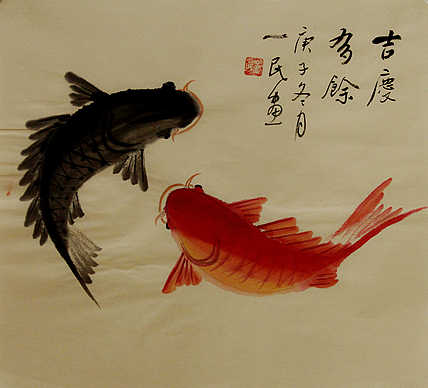 吉慶
多餘
庚子冬月
一民畫